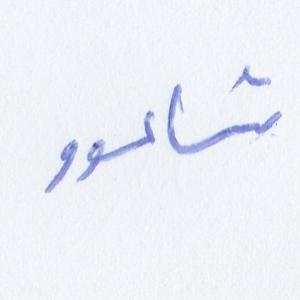 شالوو